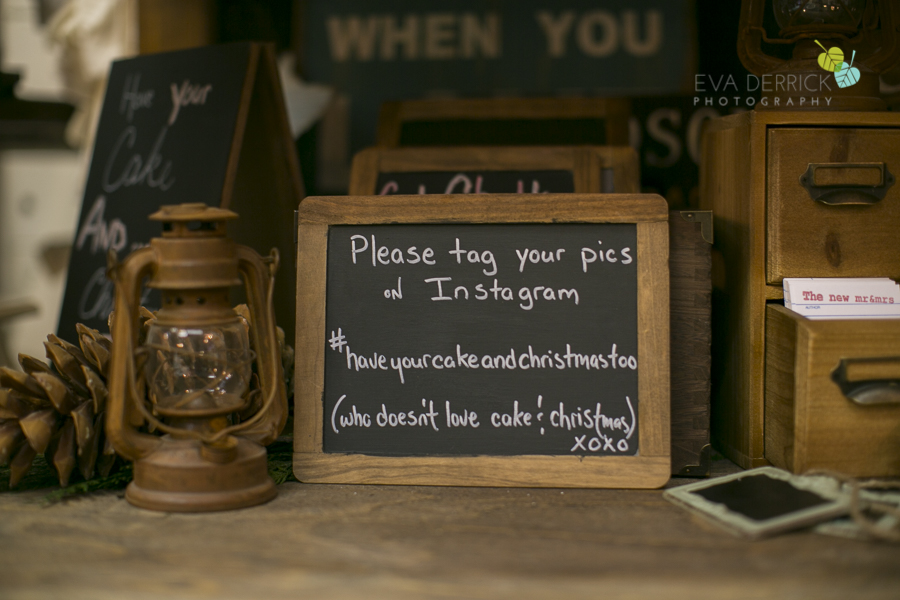 WHEN YOU
EVA DERRICK
PHOTOGRAPHY
Have your
Cake
And...
Please tag your pics
on Instagram
#haveyourcakeandchristmastoo
(who doesn't love cake & christmas)
xoxo
The new mr&mrs